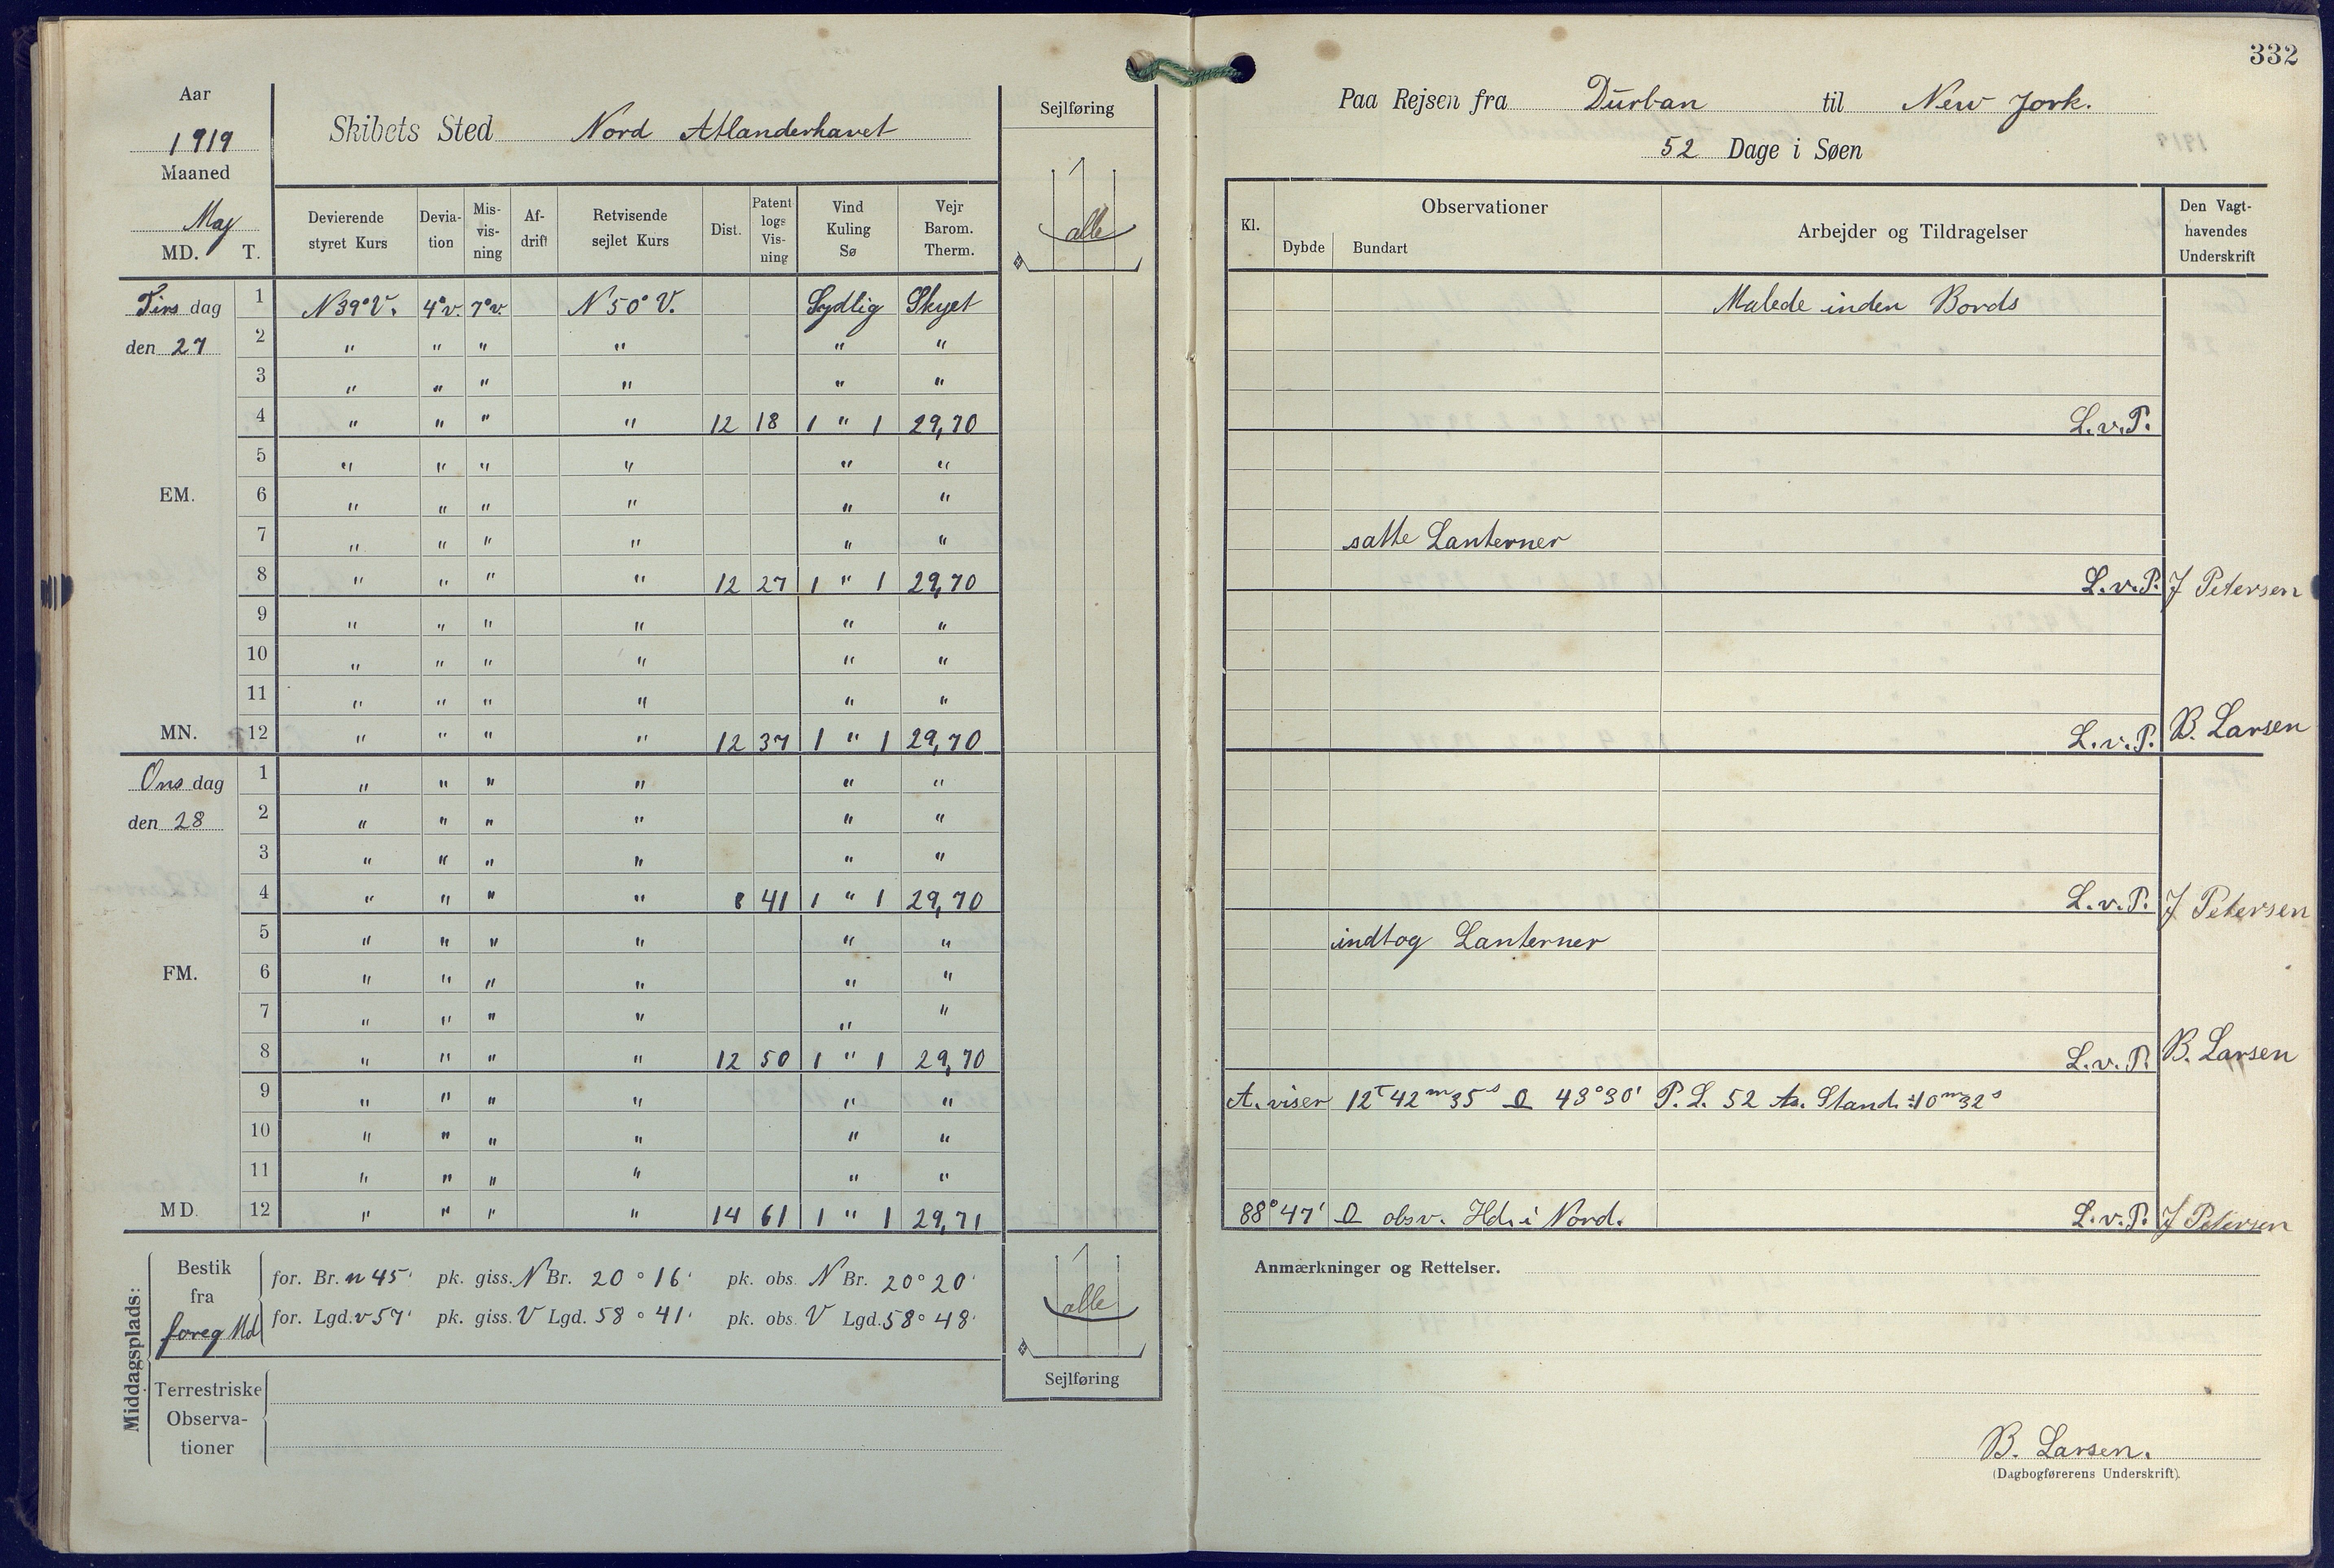 332
Aar
1919
Maaned
Maj
MD. T.
Skibets Sted Nord Atlanderhavet
Sejlføring
alle
Paa Rejsen fra Durban til New Jork.
52 Dage i Søen
Devierende styret Kurs | Devia-tion | Mis-vis-ning | Af-drift | Retvisende sejlet Kurs | Dist. | Patent logs Vis-ning | Vind Kuling Sø | Vejr Barom. Therm.
Kl. | Observationer | Dybde | Bundart | Arbejder og Tildragelser | Den Vagt-havendes Underskrift
Tirs dag 1 N 39° V. 4° v. 7° v. N 50° V. Sydlig Skyet Malede inden Bords
den 27 2 " " " " " "
3 " " " " " "
4 " " " " 12 18 1 " 1 29,70 L.v.P.
5 " " " " " "
EM. 6 " " " " " "
7 " " " " " " satte Lanterner
8 " " " " 12 27 1 " 1 29,70 L.v.P. J Petersen
9 " " " " " "
10 " " " " " "
11 " " " " " "
MN. 12 " " " " 12 37 1 " 1 29,70 L.v.P. B. Larsen
Ons dag 1 " " " " " "
den 28 2 " " " " " "
3 " " " " " "
4 " " " " 8 41 1 " 1 29,70 L.v.P. J Petersen
5 " " " " " " indtog Lanterner
FM. 6 " " " " " "
7 " " " " " "
8 " " " " 12 50 1 " 1 29,70 L.v.P. B. Larsen
9 " " " " " " A. viser 12 T 42 m 35 s 43° 30' P. L. 52 Stand. 10 m 32 s
10 " " " " " "
11 " " " " " "
MD. 12 " " " " 14 61 1 " 1 29,71 88° 47' obsv. Hd. i Nord. L.v.P. J Petersen
Middagsplads:
Bestik fra foreg Md
for. Br. n 45' pk. giss. N Br. 20° 16' pk. obs. N Br. 20° 20'
for. Lgd. v 57' pk. giss. V Lgd. 58° 41' pk. obs. V Lgd. 58° 48'
Terrestriske
Observa-
tioner
alle
Sejlføring
Anmærkninger og Rettelser.
B. Larsen.
(Dagbogførerens Underskrift).